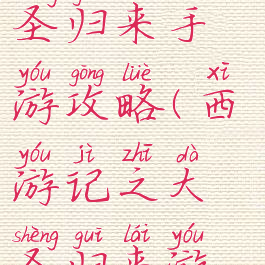 圣归来手
yóu gōng lüè xī
游攻略(西
yóu jì zhī dà
游记之大
shèng guī lái yóu
圣归来游